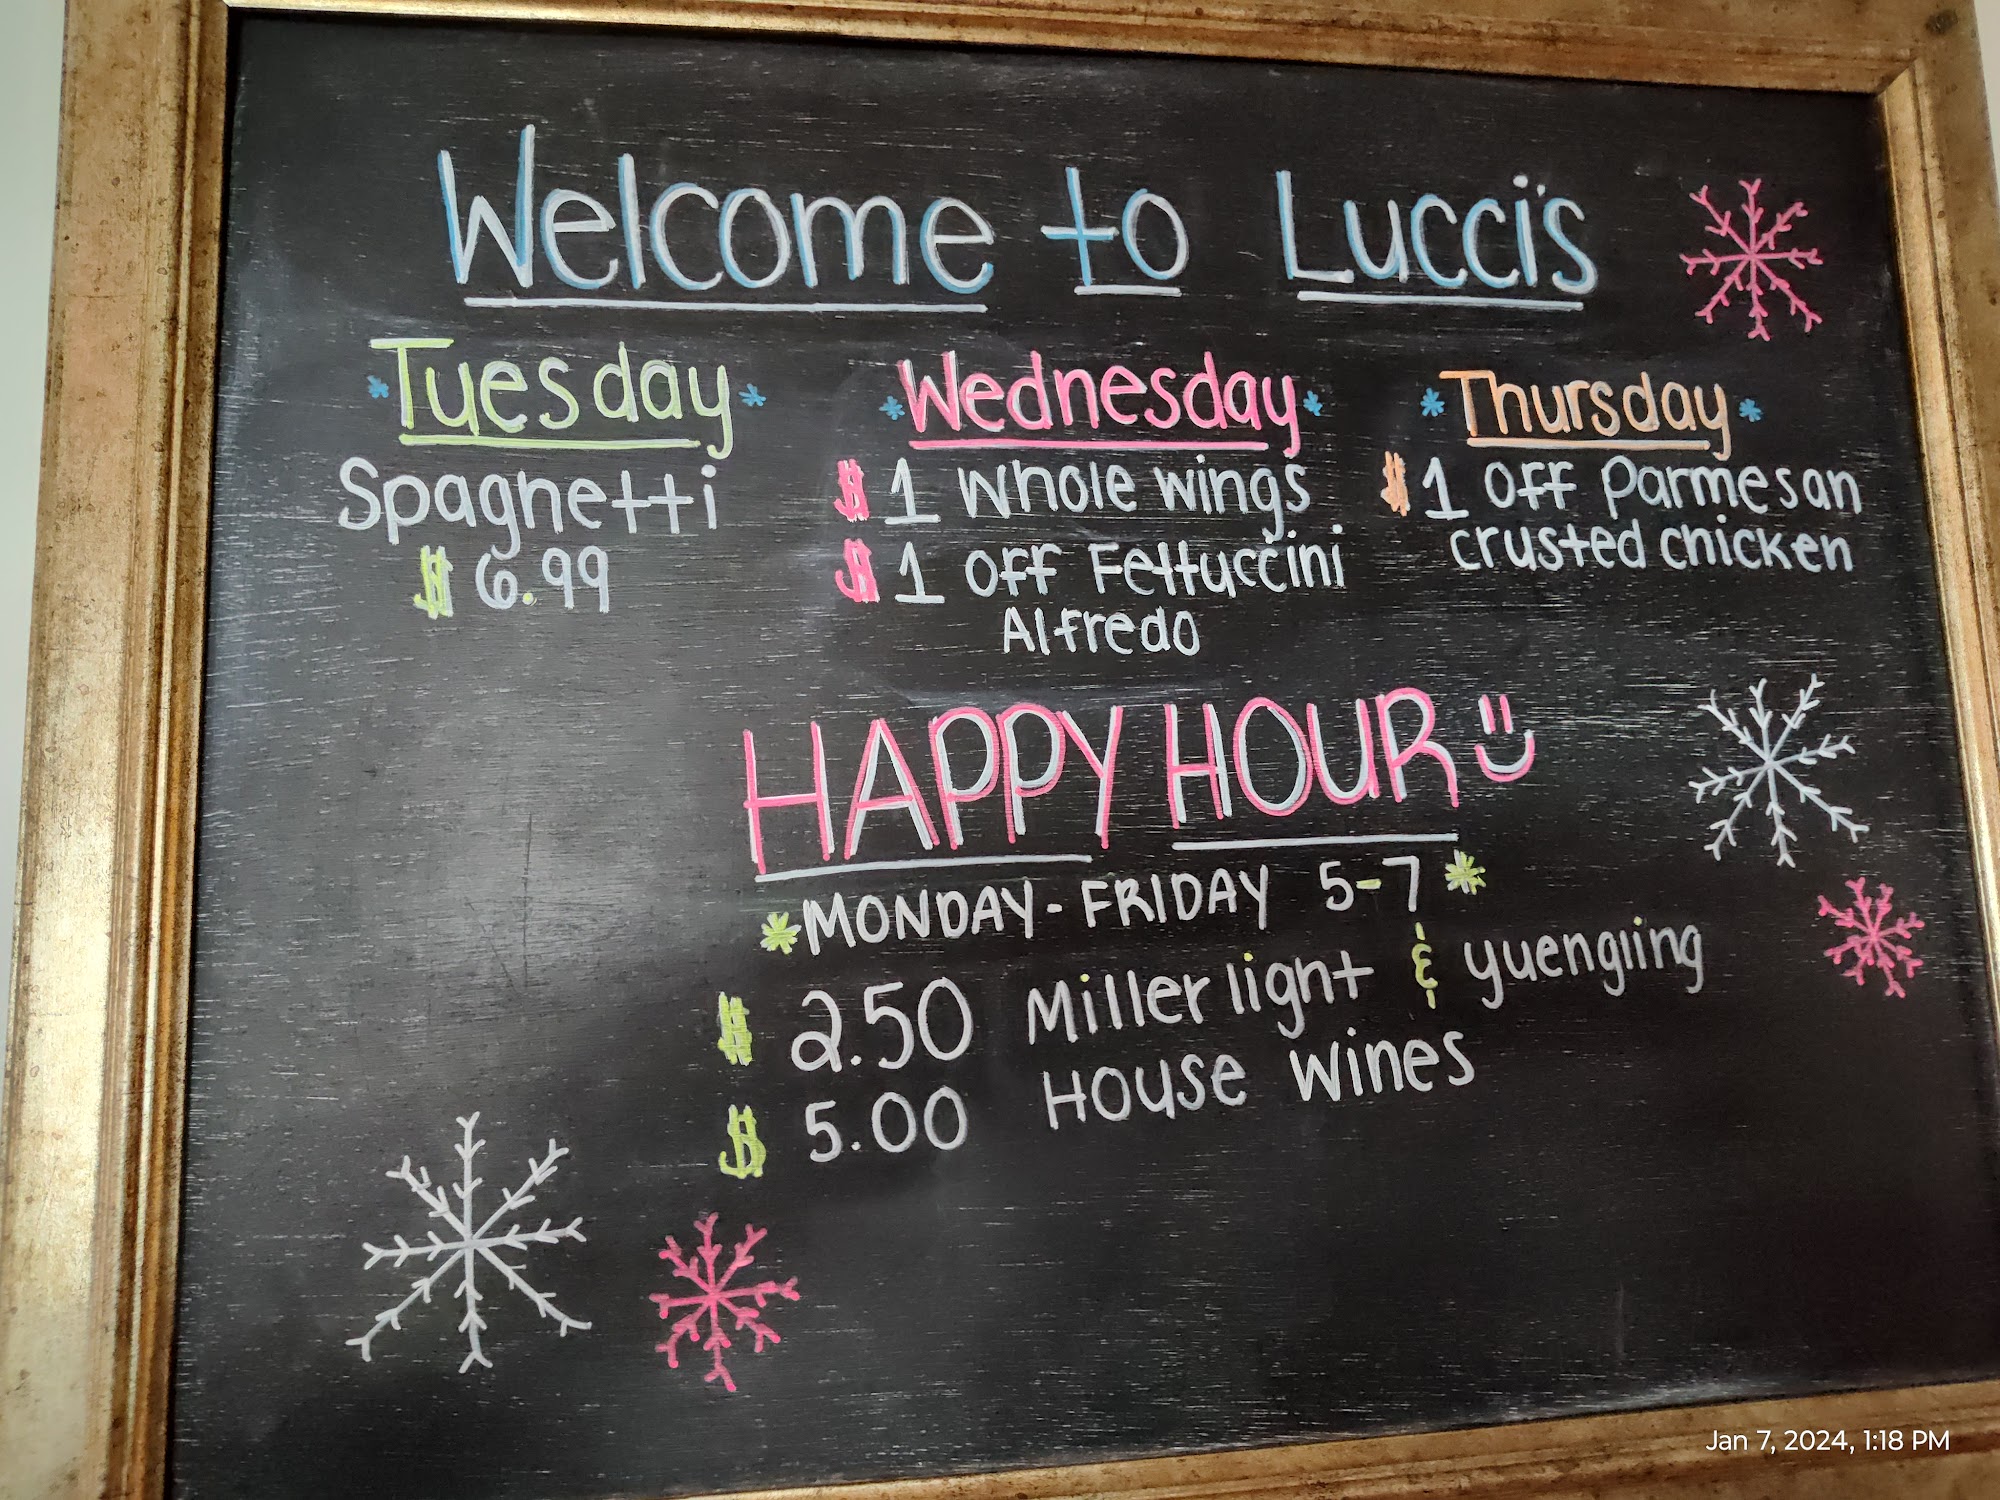 Welcome to Lucci's
Tuesday
Spaghetti
$ 6.99
Wednesday
$ 1 whole wings
$ 1 off Fettuccini
Alfredo
Thursday
$ 1 off parmesan
crusted chicken
HAPPY HOUR
MONDAY - FRIDAY 5-7
$ 2.50 Miller light & yuengling
$ 5.00 House wines
Jan 7, 2024, 1:18 PM